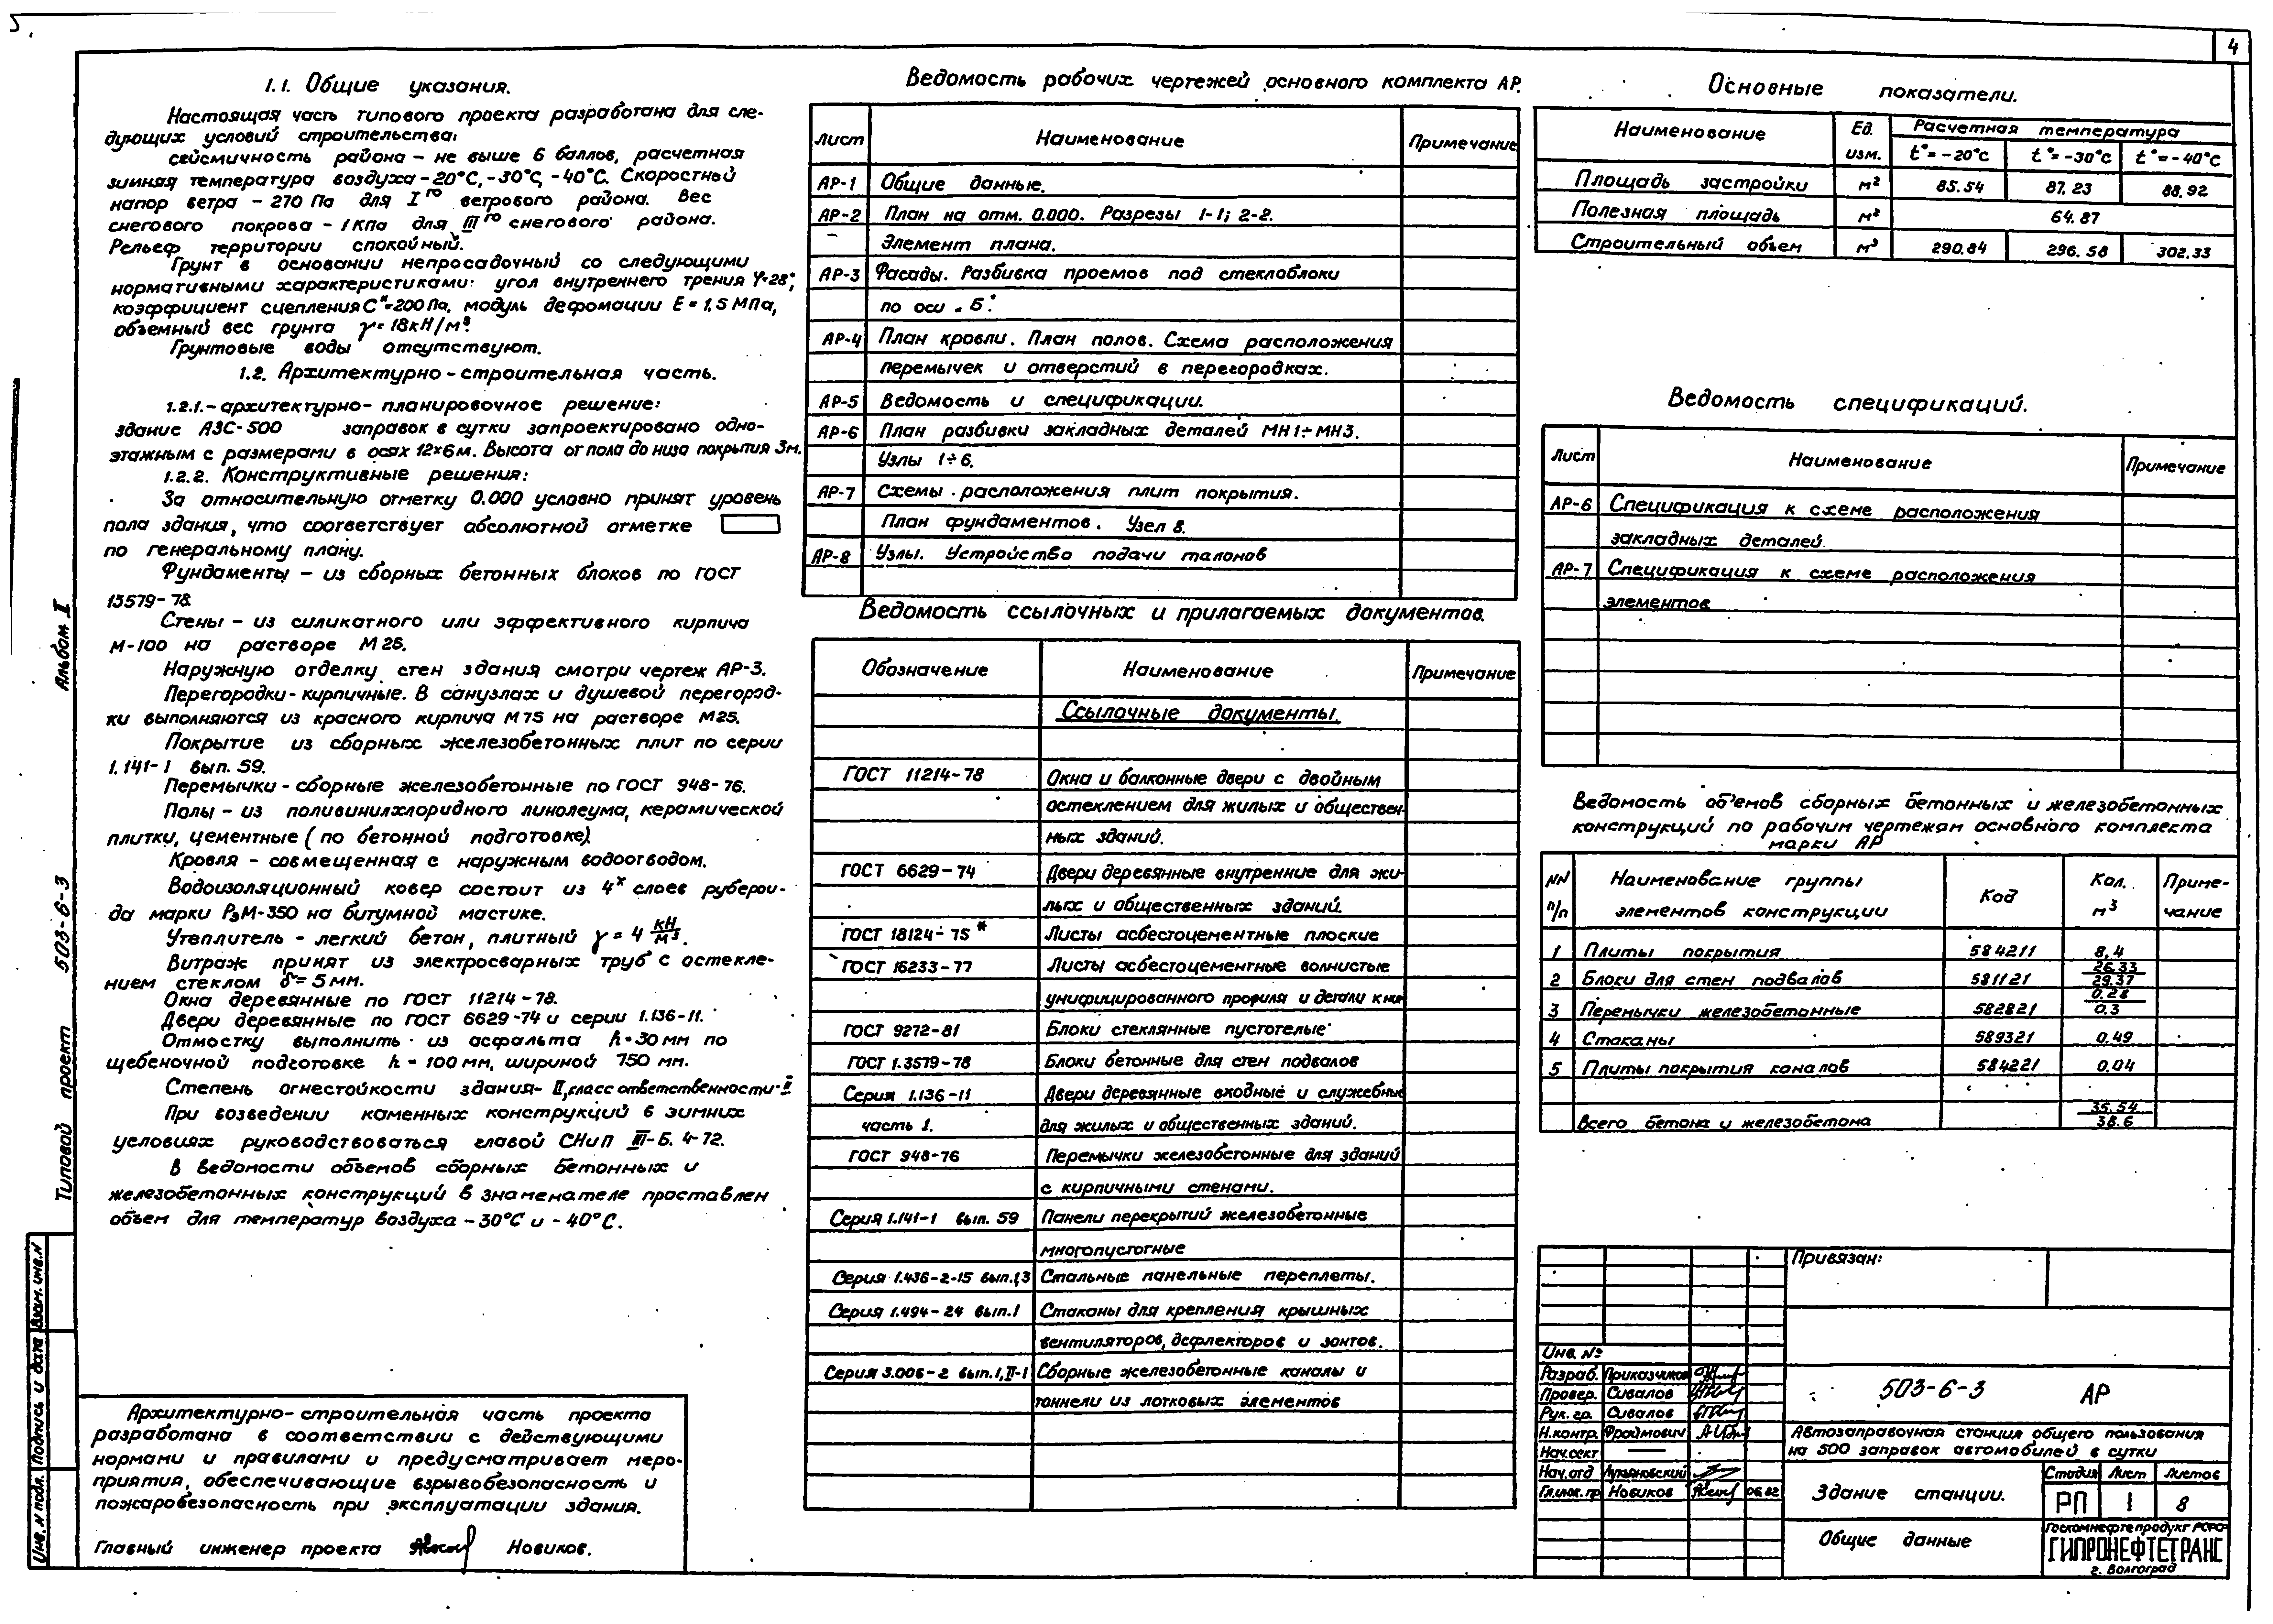 4
1.1. Общие указания.
Настоящая часть типового проекта разработана для сле-
дующих условий строительства:
сейсмичность района - не выше 6 баллов, расчетная
зимняя температура воздуха -20°С, -30°С, -40°С. Скоростной
напор ветра - 270 Па для I го ветрового района. Вес
снегового покрова - 1 КПа для III го снегового района.
Рельеф территории спокойный.
Грунт в основании непросадочный со следующими
нормативными характеристиками: угол внутреннего трения φ=28°;
коэффициент сцепления Сн=200 Па, модуль дефомации Е = 1,5 МПа,
объемный вес грунта γ=18кН/м³.
Грунтовые воды отсутствуют.
1.2. Архитектурно-строительная часть.
1.2.1.-архитектурно-планировочное решение:
здание АЗС-500 заправок в сутки запроектировано одно-
этажным с размерами в осях 12×6м. Высота от пола до низа покрытия 3м.
1.2.2. Конструктивные решения:
За относительную отметку 0.000 условно принят уровень
пола здания, что соответствует абсолютной отметке
по генеральному плану.
Фундаменты - из сборных бетонных блоков по ГОСТ
13579-78.
Стены - из силикатного или эффективного кирпича
М-100 на растворе М25.
Наружную отделку стен здания смотри чертеж АР-3.
Перегородки-кирпичные. В санузлах и душевой перегород-
ки выполняются из красного кирпича М75 на растворе М25.
Покрытие из сборных железобетонных плит по серии
1.141-1 вып. 59.
Перемычки - сборные железобетонные по ГОСТ 948-76.
Полы - из поливинилхлоридного линолеума, керамической
плитки, цементные (по бетонной подготовке).
Кровля - совмещенная с наружным водоотводом.
Водоизоляционный ковер состоит из 4х слоев руберои-
да марки РэМ-350 на битумной мастике.
Утеплитель - легкий бетон, плитный γ = 4 кН/м³.
Витраж принят из электросварных труб с остекле-
нием стеклом δ=5мм.
Окна деревянные по ГОСТ 11214-78.
Двери деревянные по ГОСТ 6629-74 и серии 1.136-11.
Отмостку выполнить из асфальта h=30мм по
щебеночной подготовке h=100мм, шириной 750 мм.
Степень огнестойкости здания- II, класс ответственности-II
При возведении каменных конструкций в зимних
условиях руководствоваться главой СНиП III-Б. 4-72.
В ведомости объемов сборных бетонных и
железобетонных конструкций в знаменателе проставлен
объем для температур воздуха -30°С и -40°С.
Архитектурно-строительная часть проекта
разработана в соответствии с действующими
нормами и правилами и предусматривает меро-
приятия, обеспечивающие взрывобезопасность и
пожаробезопасность при эксплуатации здания.
Главный инженер проекта Новиков.
Альбом I
Типовой проект 503-6-3
Взам. инв.N
Подпись и дата
Инв. N подл.
Ведомость рабочих чертежей основного комплекта АР.
Лист Наименование Примечание
АР-1 Общие данные.
АР-2 План на отм. 0.000. Разрезы 1-1; 2-2.
Элемент плана.
АР-3 Фасады. Разбивка проемов под стеклоблоки
по оси „Б".
АР-4 План кровли. План полов. Схема расположения
перемычек и отверстий в перегородках.
АР-5 Ведомость и спецификации.
АР-6 План разбивки закладных деталей МН1÷МН3.
Узлы 1÷6.
АР-7 Схемы расположения плит покрытия.
План фундаментов. Узел 8.
АР-8 Узлы. Устройства подачи талонов
Ведомость ссылочных и прилагаемых документов.
Обозначение Наименование Примечание
Ссылочные документы.
ГОСТ 11214-78 Окна и балконные двери с двойным
остеклением для жилых и обществен-
ных зданий.
ГОСТ 6629-74 Двери деревянные внутренние для жи-
лых и общественных зданий.
ГОСТ 18124-75* Листы асбестоцементные плоские
ГОСТ 16233-77 Листы асбестоцементные волнистые
унифицированного профиля и детали к ним
ГОСТ 9272-81 Блоки стеклянные пустотелые
ГОСТ 1.3579-78 Блоки бетонные для стен подвалов
Серия 1.136-11 Двери деревянные входные и служебные
часть 1. для жилых и общественных зданий.
ГОСТ 948-76 Перемычки железобетонные для зданий
с кирпичными стенами.
Серия 1.141-1 вып. 59 Панели перекрытий железобетонные
многопустотные
Серия 1.436-2-15 вып.1,3 Стальные панельные переплеты.
Серия 1.494-24 вып.1 Стаканы для крепления крышных
вентиляторов, дефлекторов и зонтов.
Серия 3.006-2 вып.1,II-1 Сборные железобетонные каналы и
тоннели из лотковых элементов
Основные показатели.
Наименование Ед. изм. Расчетная температура
t°=-20°С t°=-30°С t°=-40°С
Площадь застройки м² 85.54 87.23 88.92
Полезная площадь м² 64.87
Строительный объем м³ 290.84 296.58 302.33
Ведомость спецификаций.
Лист Наименование Примечание
АР-6 Спецификация к схеме расположения
закладных деталей.
АР-7 Спецификация к схеме расположения
элементов
Ведомость об'емов сборных бетонных и железобетонных
конструкций по рабочим чертежам основного комплекта
марки АР
NN п/п Наименование группы элементов конструкции Код Кол. м³ Приме-чание
1 Плиты покрытия 584211 8,4
2 Блоки для стен подвалов 581121 26.33/29.37
3 Перемычки железобетонные 582821 0.28/0.3
4 Стаканы 589321 0,49
5 Плиты покрытия каналов 584221 0,04
Всего бетона и железобетона 35.54/38.6
Привязан:
Инв. №
Разраб. Приказчиков
Провер. Сивалов
Рук. гр. Сивалов
Н.контр. Фраймович
Нач.сект
Нач.отд Лукьяновский
Гл.инж.пр Новиков 06.82
503-6-3 АР
Автозаправочная станция общего пользования
на 500 заправок автомобилей в сутки
Здание станции.
Стадия Лист Листов
РП 1 8
Общие данные
Госкомнефтепродукт РСФСР
ГИПРОНЕФТЕТРАНС
г. Волгоград